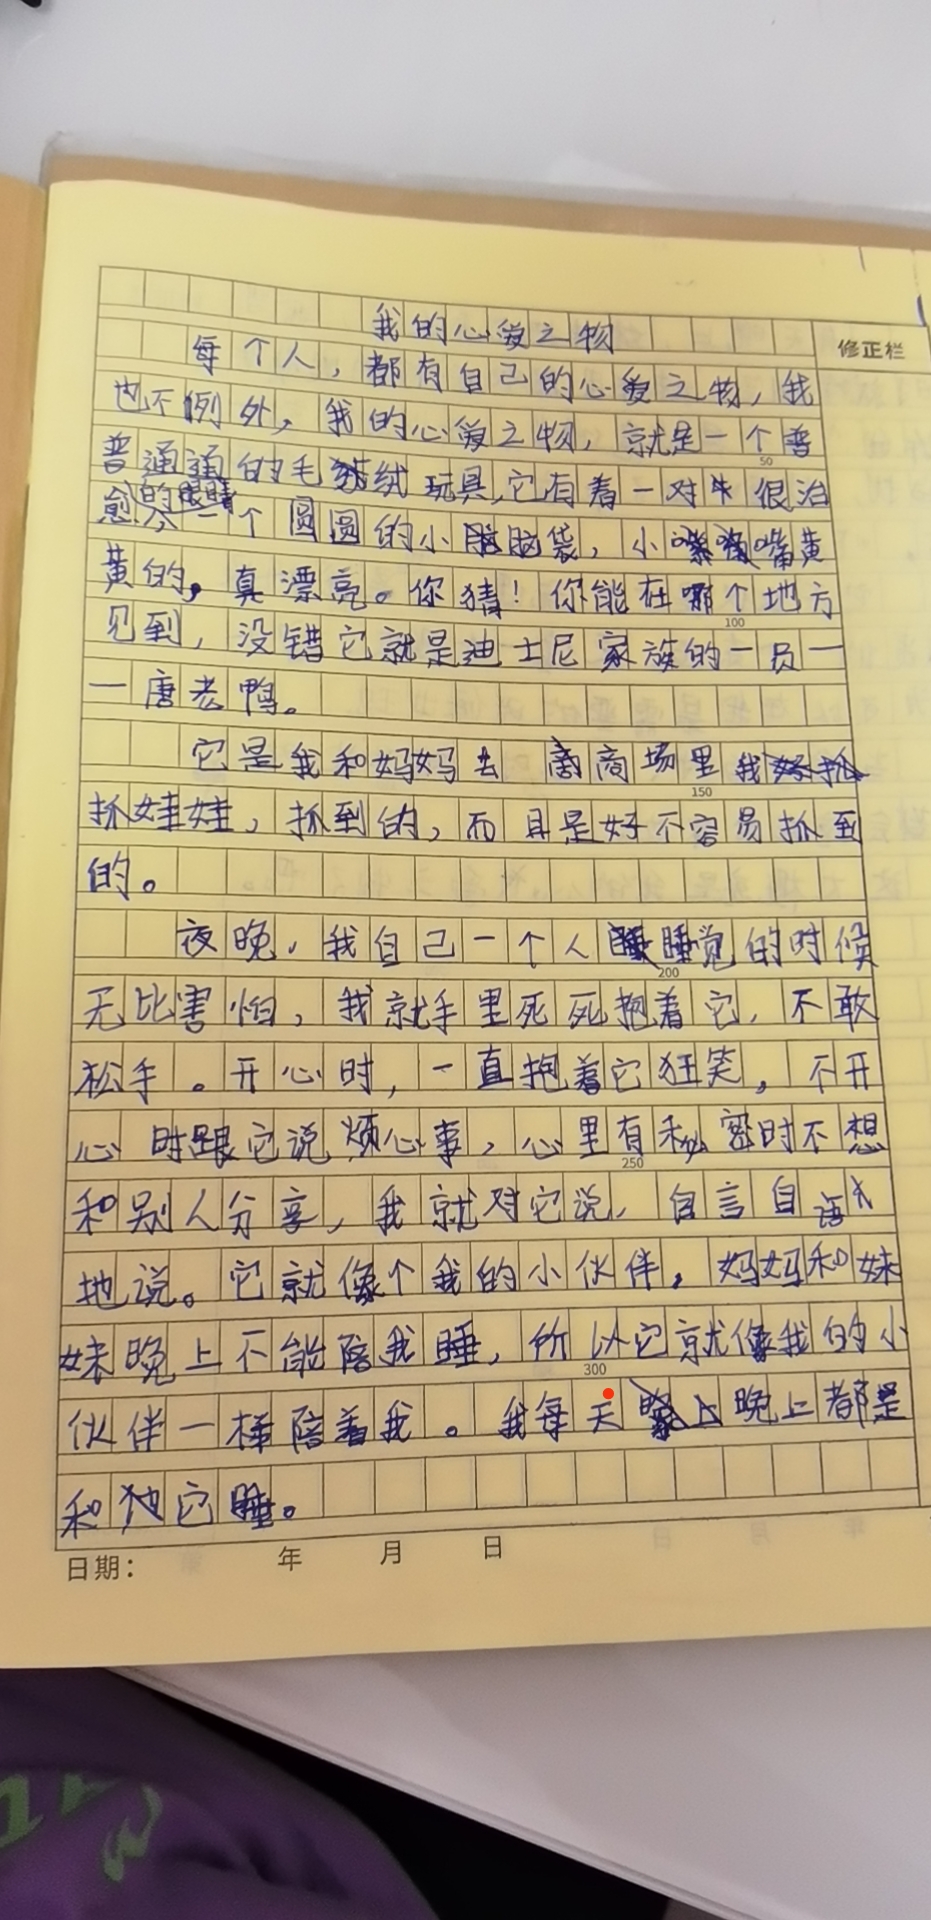 我的心爱之物
修正栏
每个人，都有自己的心爱之物，我
也不例外，我的心爱之物，就是一个普
50
普通通的毛绒玩具，它有着一对很治
愈的眼睛一个圆圆的小脑袋，小嘴黄
黄的，真漂亮。你猜！你能在哪个地方
100
见到，没错它就是迪士尼家族的一员一
一唐老鸭。
它是我和妈妈去商场里我
150
抓娃娃，抓到的，而且是好不容易抓到
的。
夜晚，我自己一个人睡觉的时候
200
无比害怕，我就手里死死抱着它，不敢
松手。开心时，一直抱着它狂笑，不开
心时跟它说烦心事，心里有秘密时不想
250
和别人分享，我就对它说，自言自语
地说。它就像个我的小伙伴，妈妈和妹
妹晚上不能陪我睡，所以它就像我的小
300
伙伴一样陪着我。我每天晚上都是
和它睡。
日期： 年 月 日